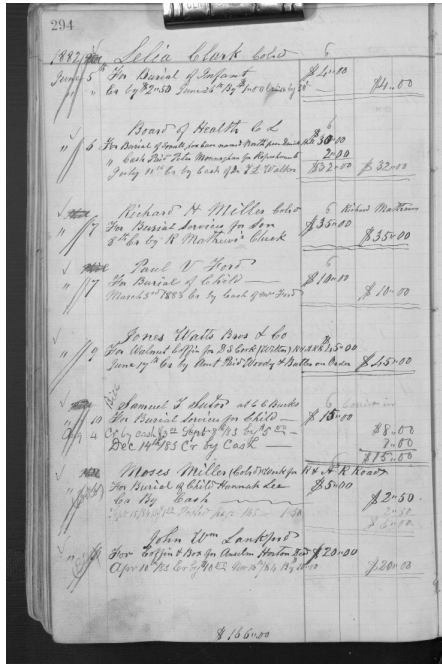 294
1882 Lelia Clark Cold 6
June 5th For Burial of Infant $4.00
" " Cr by $2.50 June 26th By $1.00 $4.00
Board of Health C L 6
" 6 For Burial of Small pox case named $30.00
" Cash Paid John for 2.00
July 11th Cr by Cash of Dr Walker $32.00 $32.00
Richard H Miller Cold 6 Richard Mathews
" 7 For Burial Services for Son $35.00
8th Cr by R Mathews Check $35.00
Paul V Ford 6
" 7 For Burial of Child — $10.00
March 3rd 1883 Cr by Cash of Mr Ford $10.00
Jones Watts Bros & Co
" 9 For Walnut Coffin for D S $45.00
June 17th Cr by Amt Paid Woody & on Order $45.00
Samuel T Sutor at C C Burks 6
" 10 For Burial Services for Child — $15.00
4 Cr by Cash $5 $8.00
Dec 14th/85 Cr by Cash — 7.00
$15.00
Moses Miller (Cold) Work for R & A R Road
" For Burial of Child Hannah Lee $5.00
Cr By Cash $2.50
2.50
John Wm Lankford
" For Coffin & Box for Horton $20.00
Apr 10th Cr by $10.00 Nov $20.00
$166.00